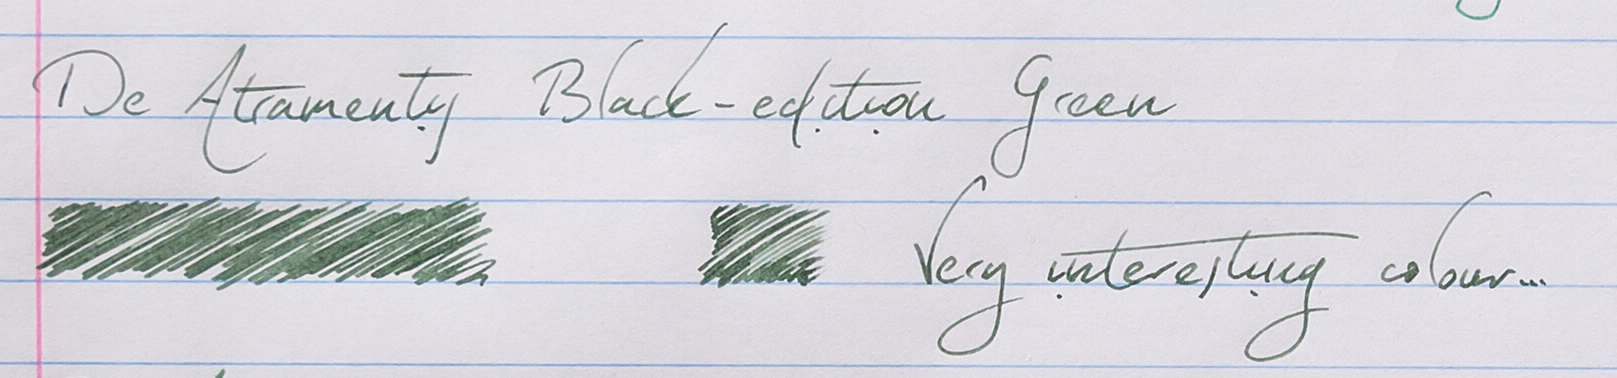 De Atramentij Black-edition Green
Very interesting colour...